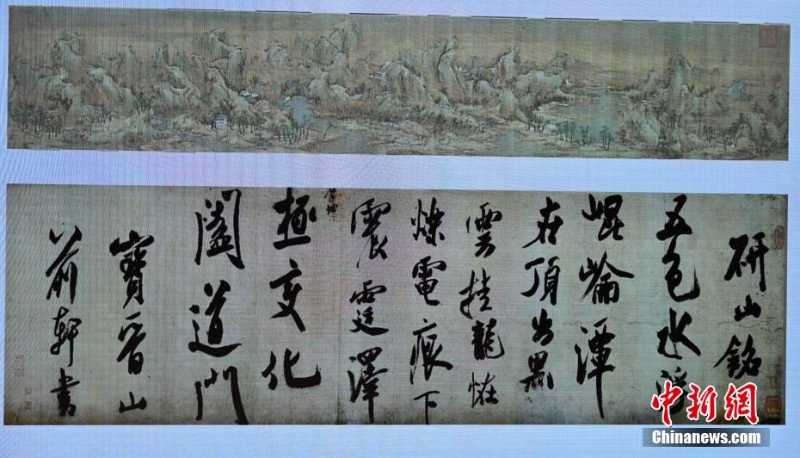 研山銘
五色水浮
崐崘潭
在頂出黑
雲挂龍怪
爍電痕下
震霆澤
極變化
闔道門
寶晉山
前軒書
中新網
Chinanews.com